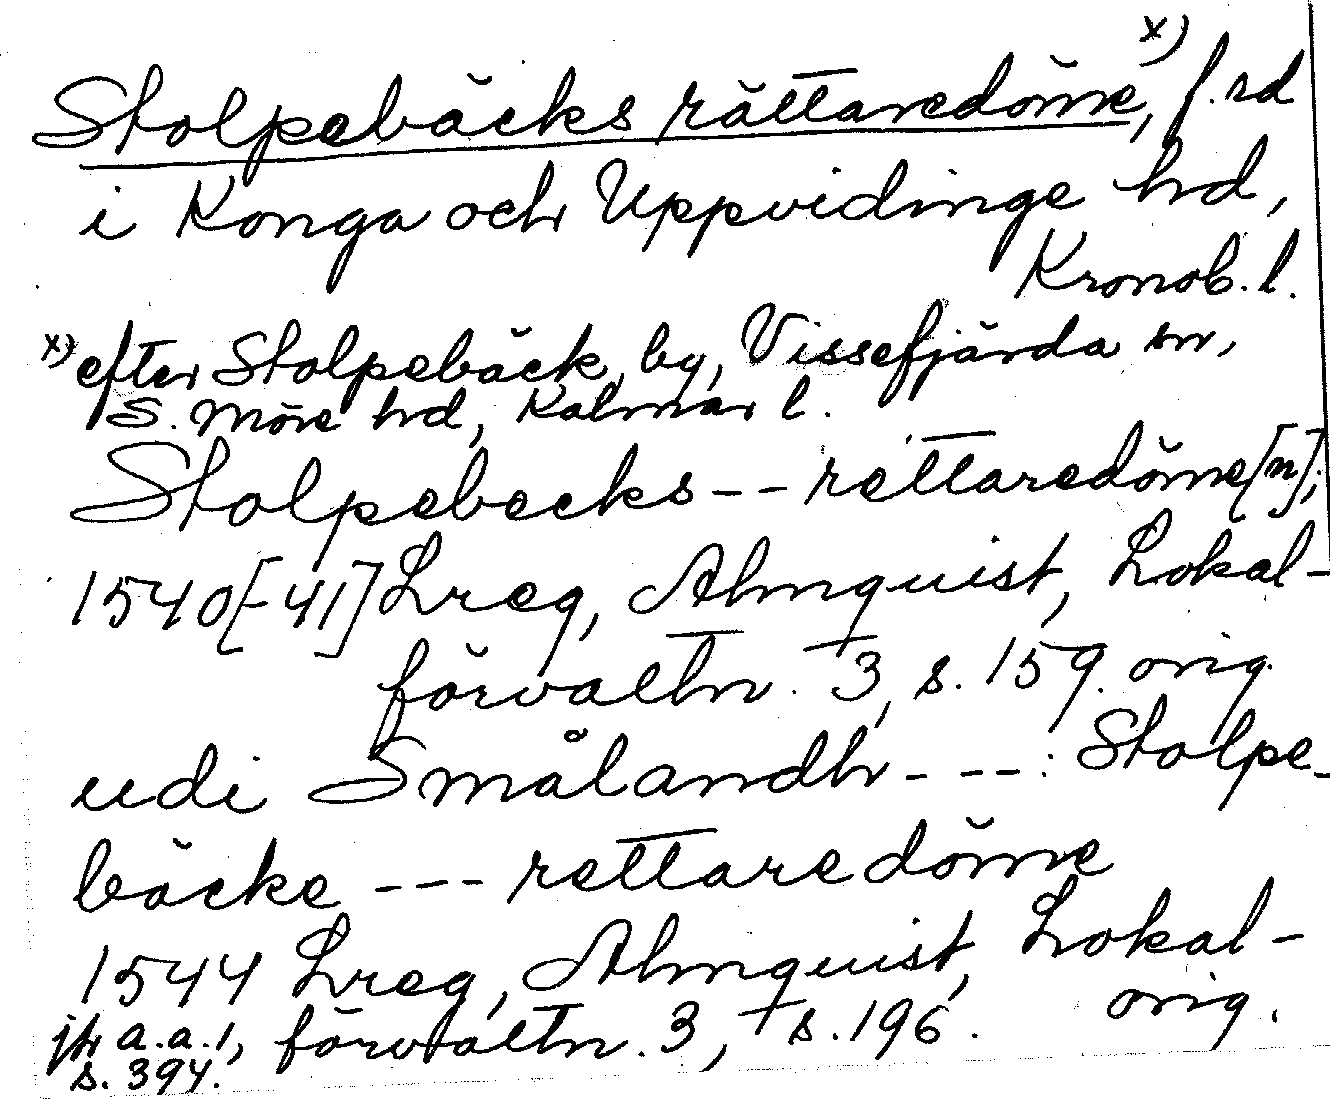 Stolpebäcks rättaredöme, x) f. rd
i Konga och Uppvidinge hrd,
Kronob. l.
x) efter Stolpebäck, by, Vissefjärda sn,
S. Möre hrd, Kalmar l.
Stolpebecks -- rettaredöme[n];
1540[-41] Lreg, Almquist, Lokal-
förvaltn. 3, s. 159. orig.
udi Smålandh ---: Stolpe-
bäcke --- rettaredöme
1544 Lreg, Almquist, Lokal-
förvaltn. 3, s. 196. orig.
jfr a.a. 1,
s. 394.